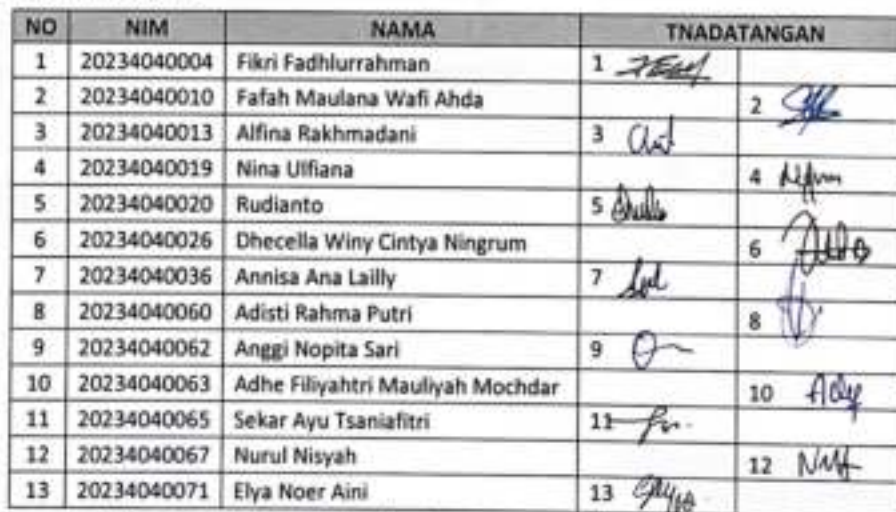 NO NIM NAMA TNADATANGAN
1 20234040004 Fikri Fadhlurrahman 1
2 20234040010 Fafah Maulana Wafi Ahda 2
3 20234040013 Alfina Rakhmadani 3
4 20234040019 Nina Ulfiana 4
5 20234040020 Rudianto 5
6 20234040026 Dhecella Winy Cintya Ningrum 6
7 20234040036 Annisa Ana Lailly 7
8 20234040060 Adisti Rahma Putri 8
9 20234040062 Anggi Nopita Sari 9
10 20234040063 Adhe Filiyahtri Mauliyah Mochdar 10
11 20234040065 Sekar Ayu Tsaniafitri 11
12 20234040067 Nurul Nisyah 12
13 20234040071 Elya Noer Aini 13